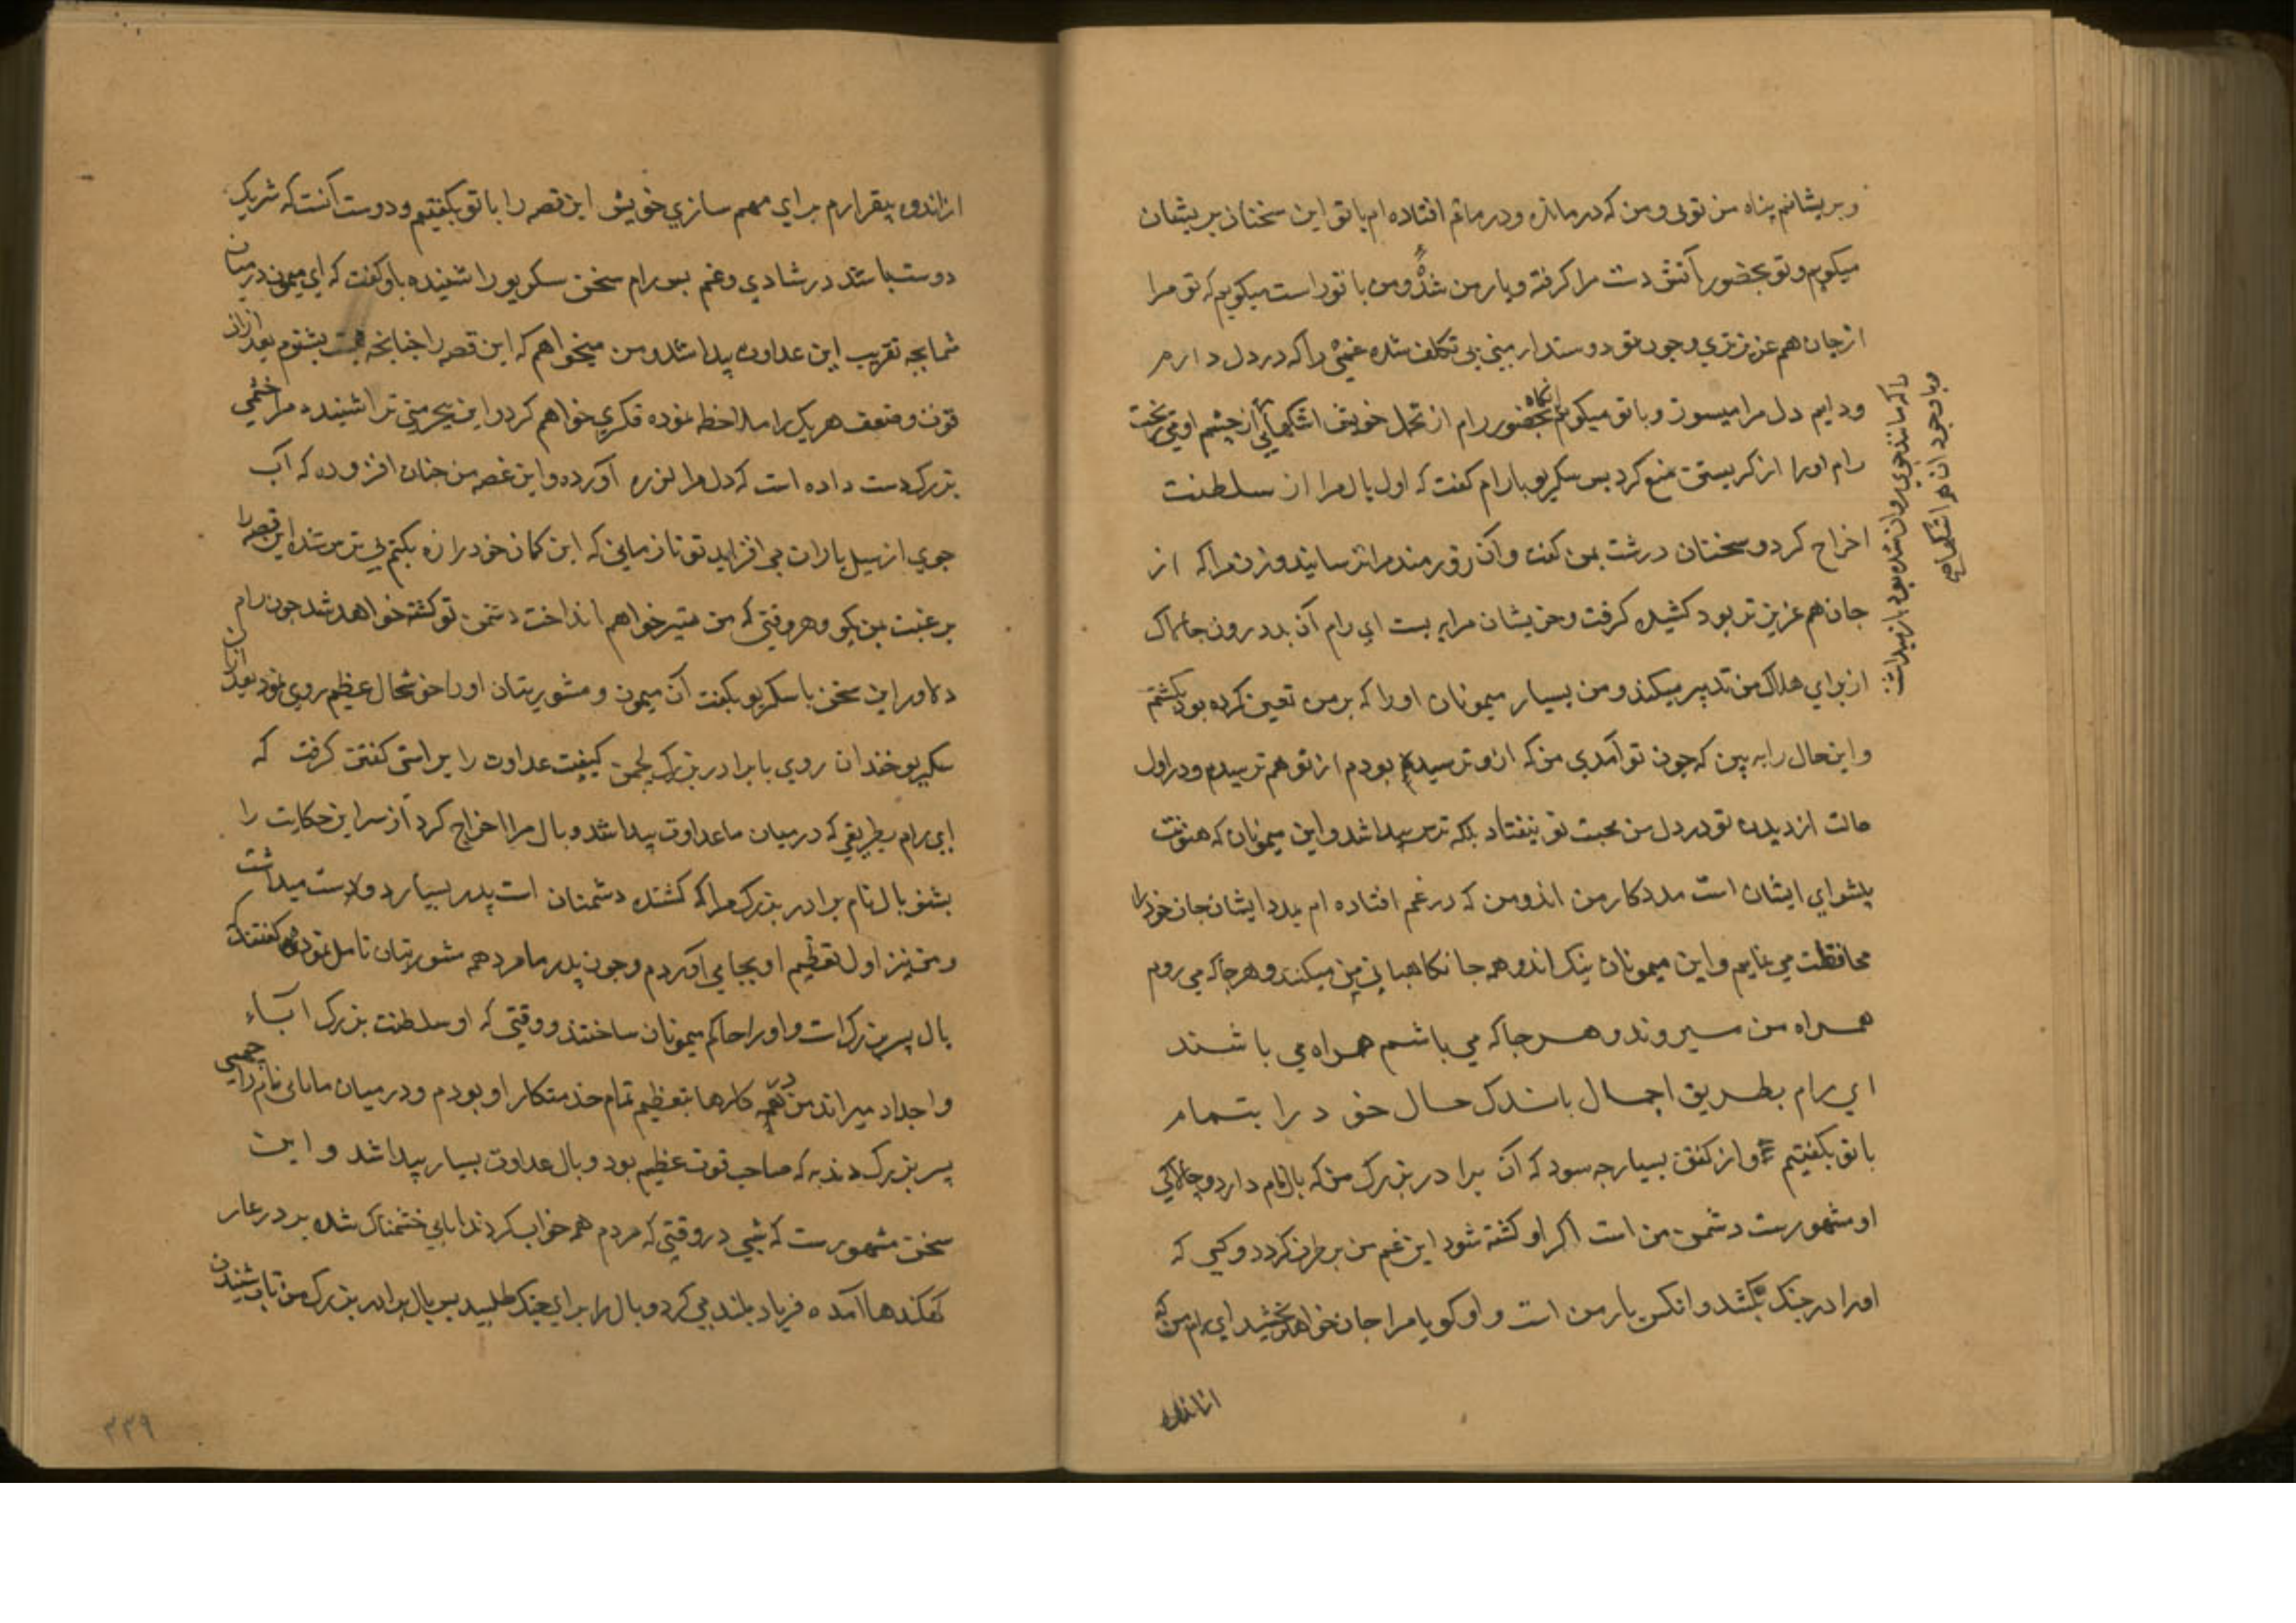 وپریشانم پناه من توئی ومن که درمانده ودرماتم افتاده ام باتو این سخنان پریشان
میکویم وتو بحضور آتش دست مرا کرفته ویار من شدهٔ ومن با تو راست میکویم که تو مرا
از جان هم عزیزتری وچون تو دوستدار بینی بی تکلف شده غمی را که در دل دارم
ودایم دل مرا میسوزد وباتو میکویم آنکاه بحضور رام از تحمل خویش اشکهایی از چشم او می ریخت
راکه مانند جوی روان شده بود باز میداشت
وباوجود آن هم اشکها می
رام اورا از کریستن منع کرد پس سکریو بارام کفت که اول بال مرا از سلطنت
اخراج کرد وسخنان درشت بمن کفت وآن زورمند مرا ترسانید وزن مرا که از
جان هم عزیزتر بود کشیده کرفت وخویشان مرا بر بست ای رام آن بددرون جانم‌اک
از برای هلاک من تدبیر میکند ومن بسیار میمونان اورا که بر من تعین کرده بود بکشتم
واین حال را به بین که چون تو آمدی من که ازو ترسیده بودم از تو هم ترسیدم ودر اول
حالت از دیدن تو در دل من محبت تو نیفتاد بلکه ترس پیدا شد واین میمونان که هنونت
پیشوای ایشان است مددکار من اند ومن که در غم افتاده ام بمدد ایشان جان خود را
محافظت می نمایم واین میمونان نیک اند وهمه جا نکاهبانی من میکنند وهرجا که می روم
همراه من میروند وهرجا که می باشم همراه می باشند
ای رام بطریق اجمال باندک حال خود را بتمام
باتو بکفتیم واز کفتن بسیار چه سود که آن برادر بزرک من که بال نام دارد وچالاکی
او مشهورست دشمن من است اکر او کشته شود این غم من برطرف کردد وکسی که
اورا در جنک بکشد وانکس یار من است واو کویا مرا جان خواهد بخشید ای رام من که
از اندوه
از اندوه بیقرارم برای مهم سازی خویش این قصه را باتو بکفتیم ودوست آنست که شریک
دوست باشد در شادی وغم پس رام سخن سکریو را شنیده باو کفت که ای میمون در میان
شما بچه تقریب این عداوت پیدا شد ومن میخواهم که این قصه را چنانچه هست بشنوم بعد از ان
قوت وضعف هریک را ملاحظه نموده فکری خواهم کرد واین بیحرمتی ترا شنیده مرا خشمی
بزرک دست داده است که دل مرا لرزه آورده واین غصه من چنان افزوده که آب
جوی از سیل باران می افزاید تو تا زمانی که این کمان خود را زه بکنم بی ترس شده این قصه را
برغبت بمن بکو وهر وقتی که من تیر خواهم انداخت دشمن تو کشته خواهد شد چون رام
دلاور این سخن با سکریو بکفت آن میمون ومشورتیان اورا خوشحالی عظیم روی نمود بعد از ان
سکریو خندان روی با برادر بزرک لچمن کیفیت عداوت را براستی کفتن کرفت که
ای رام بطریقی که در میان ما عداوت پیدا شد وبال مرا اخراج کرد از سر این حکایت را
بشنو بال نام برادر بزرک مرا که کشنده دشمنان است پدر بسیار دوست میداشت
ومن نیز اول تعظیم او بجا می آوردم وچون پدر ما مرد هم مشورتیان تامل نموده کفتند که
بال پسر بزرک است واورا حاکم میمونان ساختند ووقتی که او سلطنت بزرک آباء
واجداد میراند من در همه کارها بتعظیم تمام خدمتکار او بودم ودر میان مایابی نام راکسی
پسر بزرک دندبه که صاحب قوت عظیم بود وبال عداوت بسیار پیدا شد واین
سخن مشهورست که شبی در وقتی که مردم همه خواب کردند مایابی خشمناک شده بر در غار
کهکندها آمده فریاد بلند می کرد وبال را برای جنک طلبید پس بال برادر بزرک من تاب شنیدن
۳۳۹